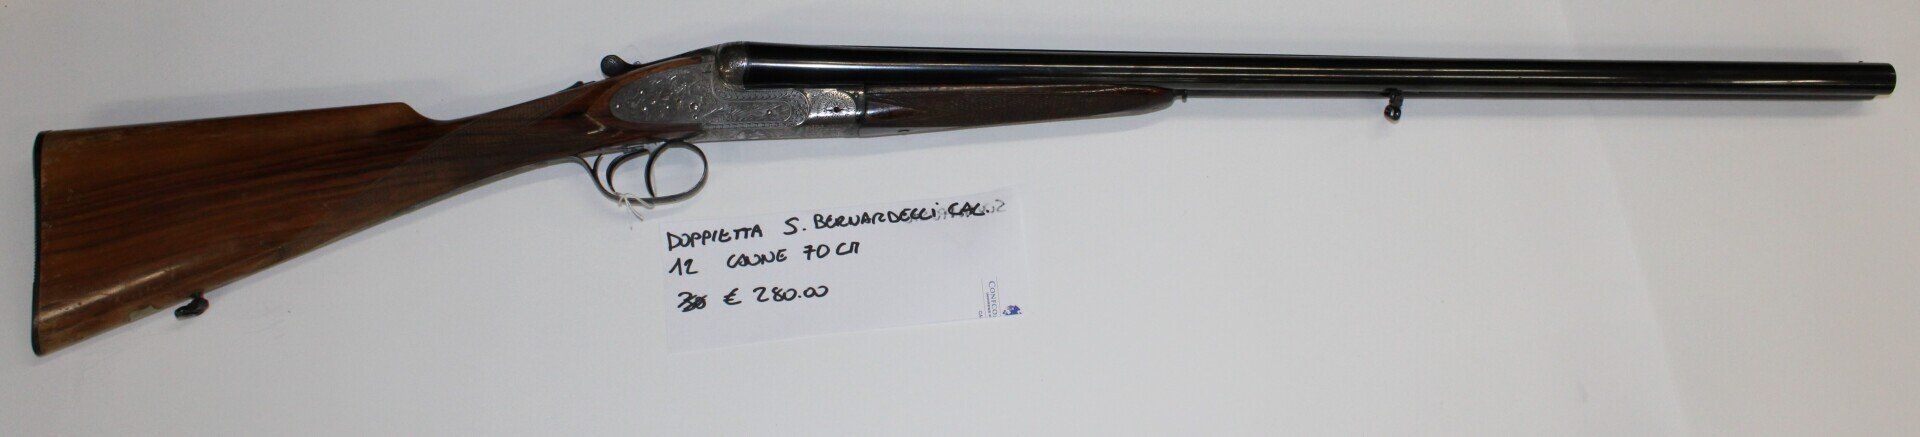 DOPPIETTA S. BERNARDELLI CAL.
12 CANNE 70 CM
€ 280.00
CONFCO